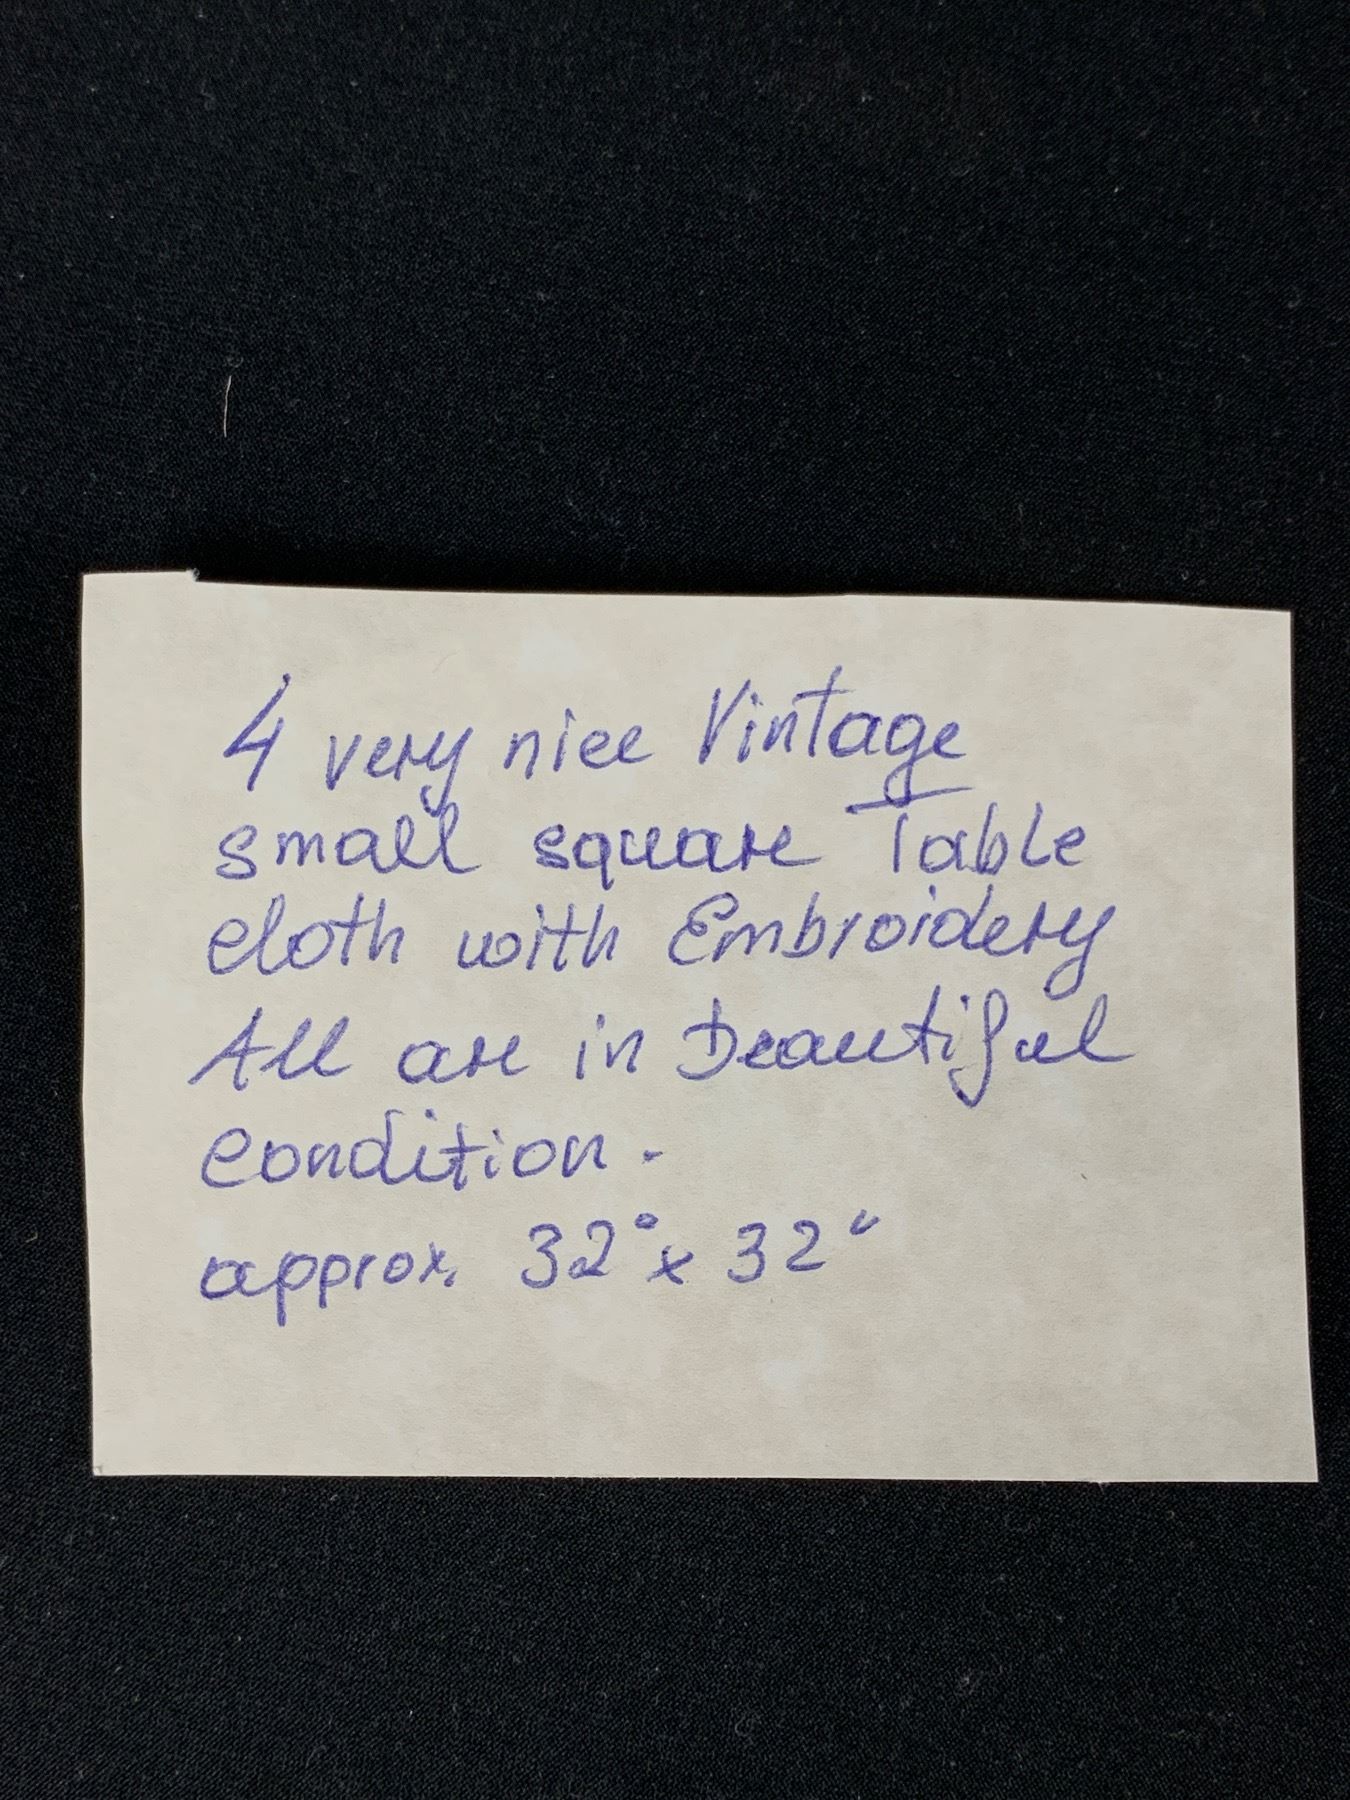 4 very nice Vintage
small square Table
cloth with Embroidery
All are in Beautiful
condition.
approx. 32" x 32"